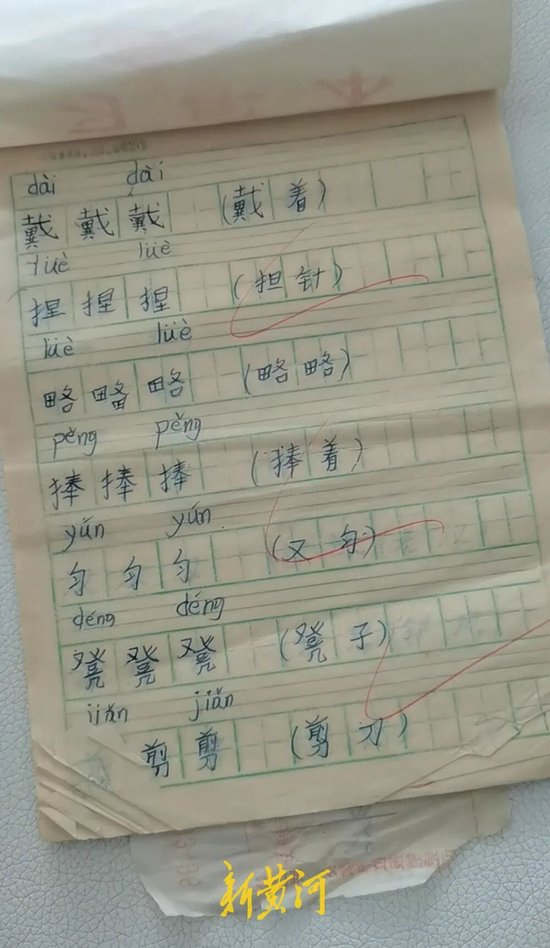 dài dài
戴 戴 戴 (戴 着)
lüè lüè
捏 捏 捏 (担 针)
lüè lüè
略 略 略 (略 略)
pěng pěng
捧 捧 捧 (捧 着)
yún yún
匀 匀 匀 (又 匀)
déng déng
凳 凳 凳 (凳 子)
jiǎn jiǎn
剪 剪 (剪 刀)
新黄河